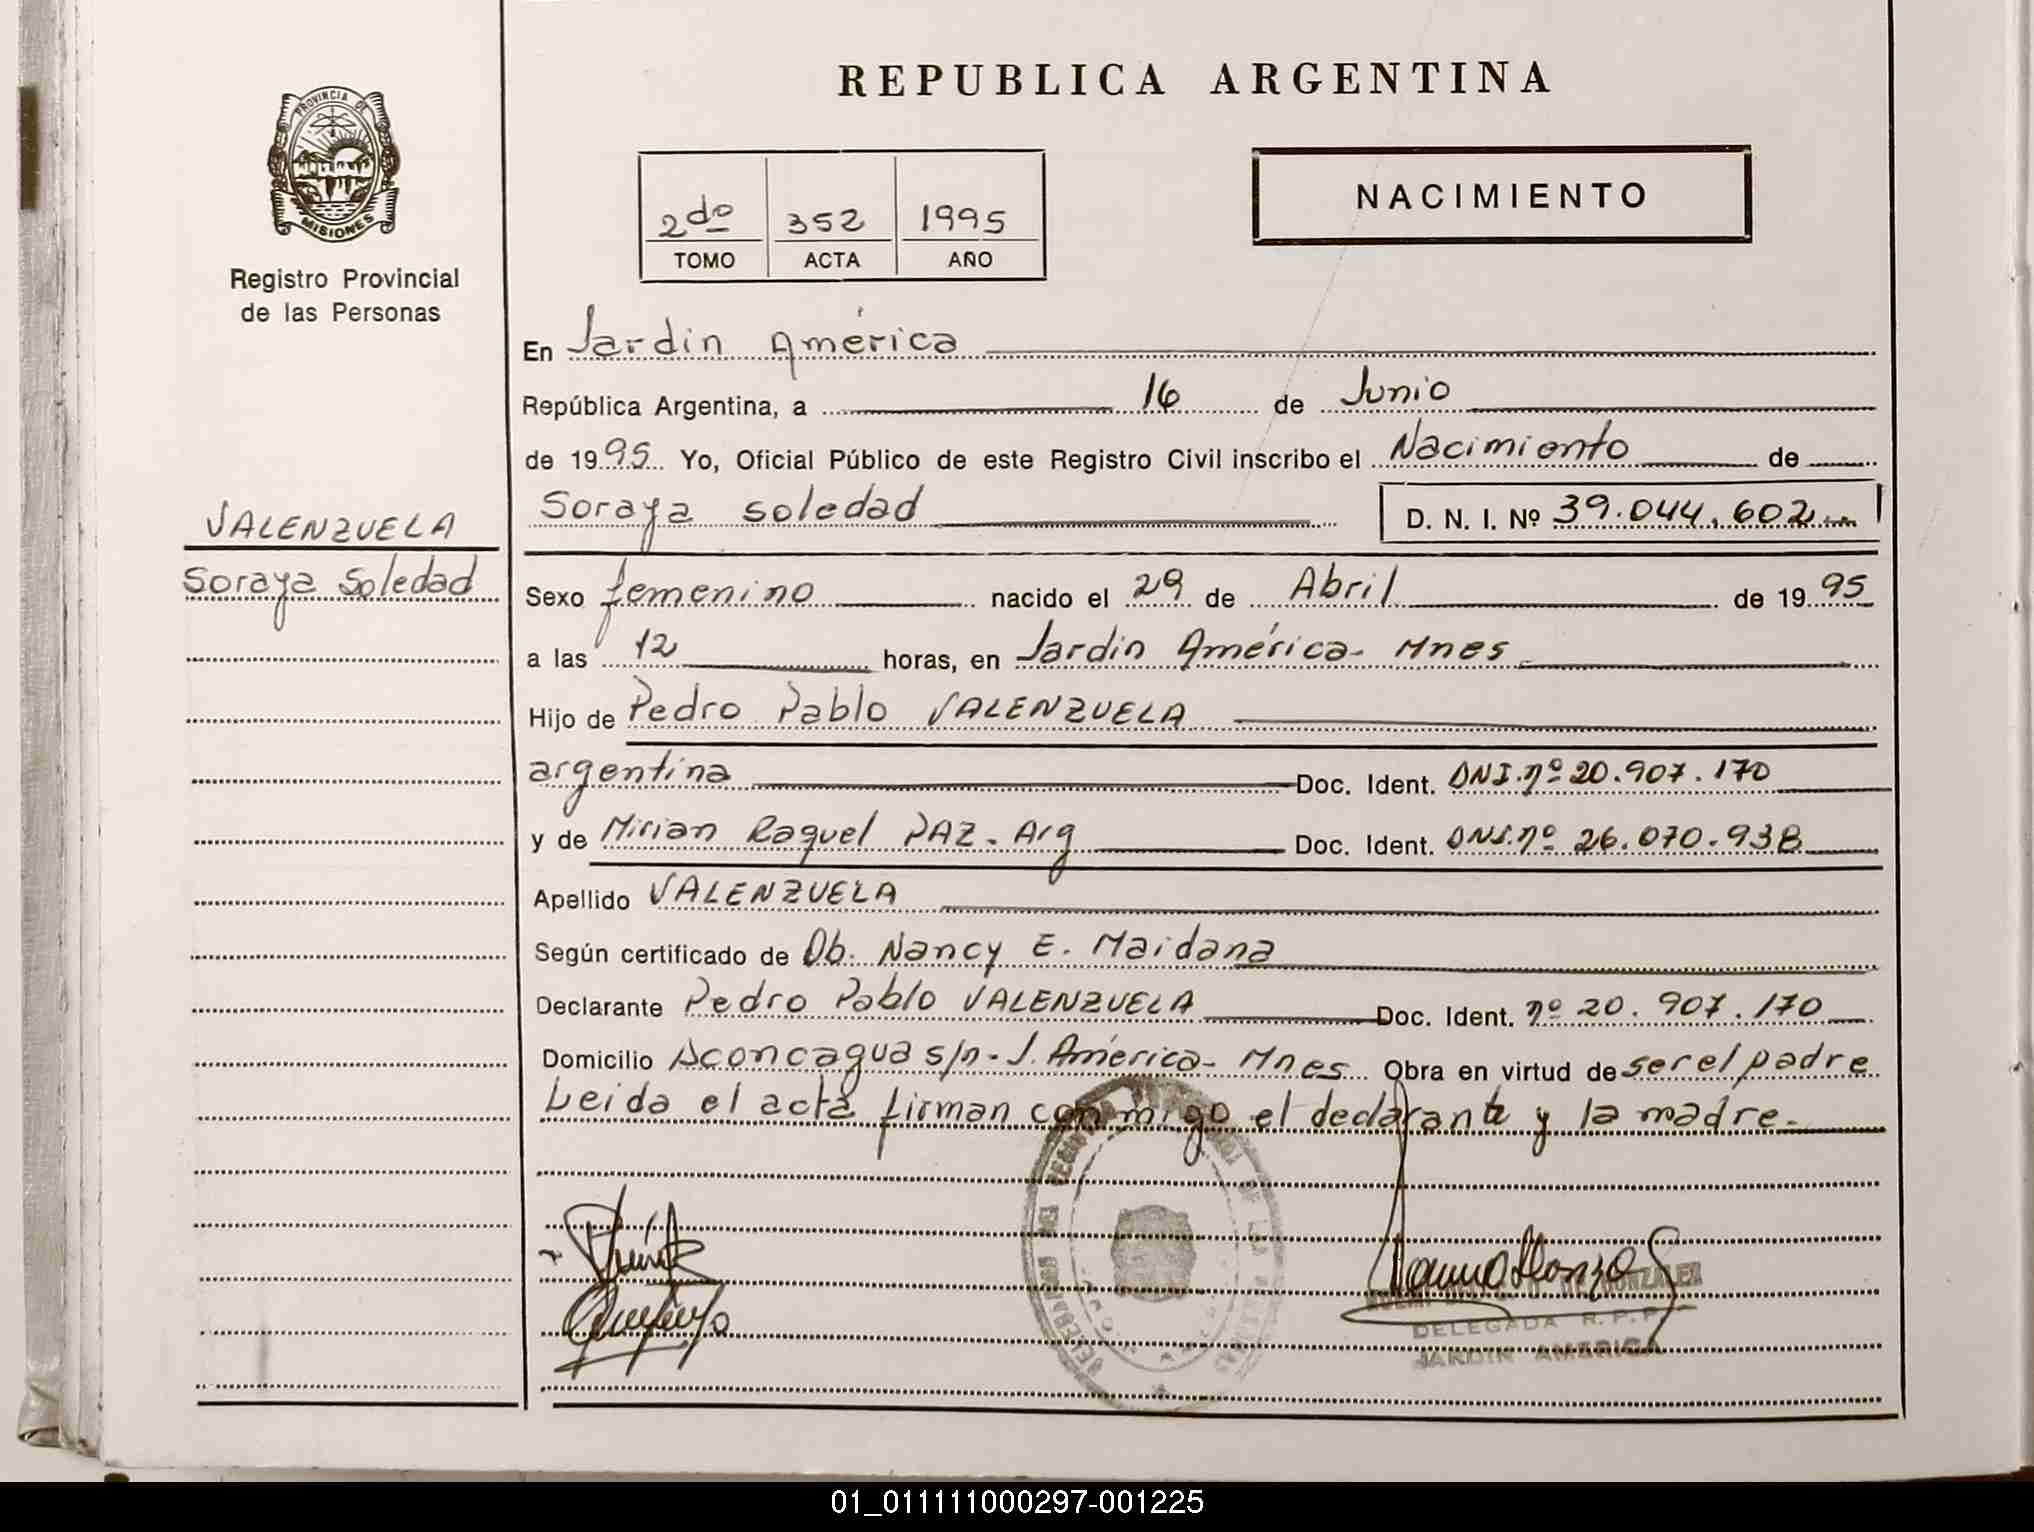 REPUBLICA ARGENTINA
PROVINCIA DE
MISIONES
Registro Provincial
de las Personas
2do 352 1995
TOMO ACTA AÑO
NACIMIENTO
En Jardin América
República Argentina, a 16 de Junio
de 1995 Yo, Oficial Público de este Registro Civil inscribo el Nacimiento de
Soraya Soledad D. N. I. Nº 39.044.602
VALENZUELA
Soraya Soledad
Sexo femenino nacido el 29 de Abril de 1995
a las 12 horas, en Jardin América - Mnes
Hijo de Pedro Pablo VALENZUELA
argentina Doc. Ident. DNI. nº 20.907.170
y de Mirian Raquel PAZ - Arg Doc. Ident. DNI. nº 26.070.938
Apellido VALENZUELA
Según certificado de Ob. Nancy E. Maidana
Declarante Pedro Pablo VALENZUELA Doc. Ident. nº 20.907.170
Domicilio Aconcagua s/n - J. América - Mnes Obra en virtud de ser el padre
Leida el acta firman conmigo el declarante y la madre.-
DE GONZALEZ
DELEGADA R. P. P.
JARDIN AMERICA
01_011111000297-001225